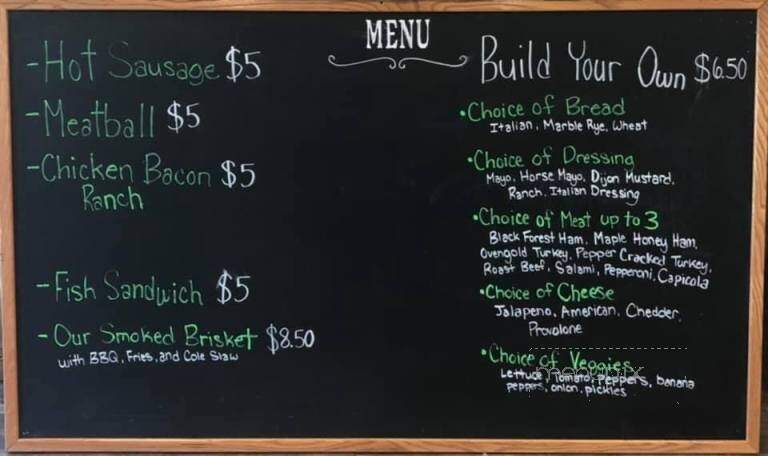 MENU
-Hot Sausage $5
-Meatball $5
-Chicken Bacon $5
Ranch
-Fish Sandwich $5
-Our Smoked Brisket $8.50
with BBQ, Fries, and Cole Slaw
Build Your Own $6.50
•Choice of Bread
Italian, Marble Rye, Wheat
•Choice of Dressing
Mayo, Horse Mayo, Dijon Mustard,
Ranch, Italian Dressing
•Choice of Meat up to 3
Black Forest Ham, Maple Honey Ham,
Ovengold Turkey, Pepper Cracked Turkey,
Roast Beef, Salami, Pepperoni, Capicola
•Choice of Cheese
Jalapeno, American, Chedder,
Provolone
•Choice of Veggies
Lettuce, Tomato, Peppers, banana
peppers, onion, pickles
menupix